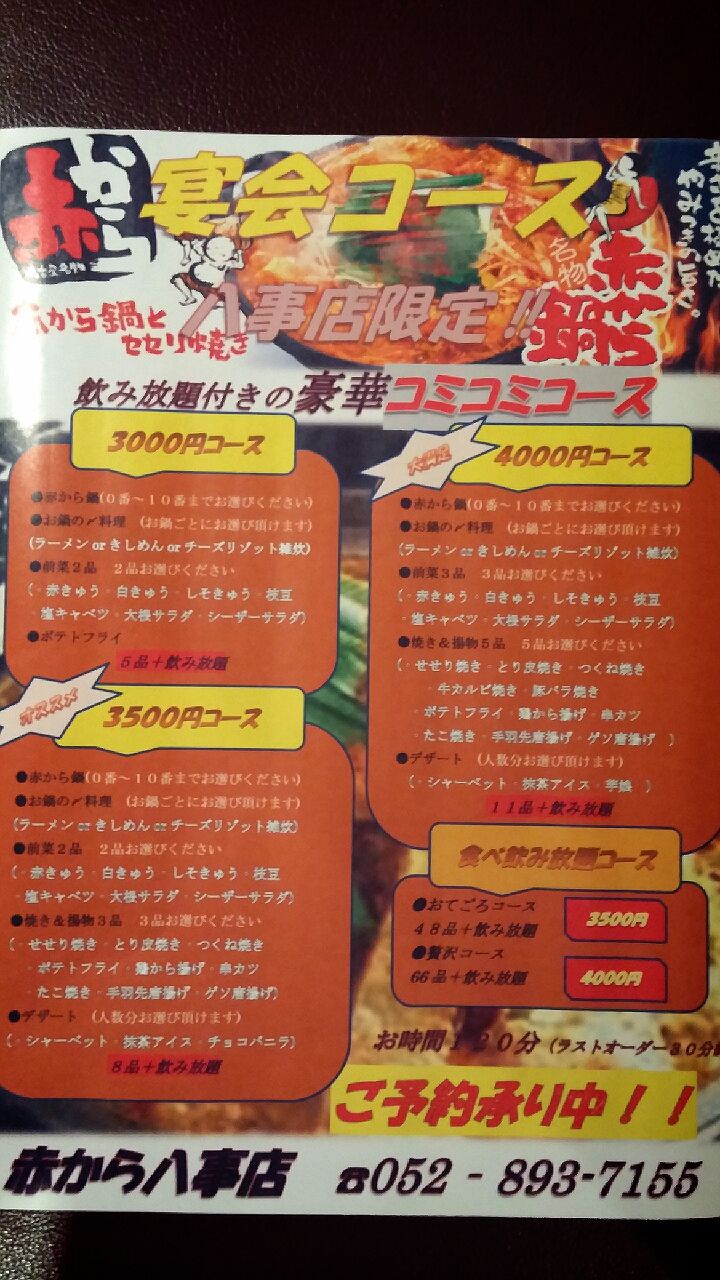 赤から
宴会コース
名物
赤から鍋
から鍋と
セセリ焼き
八事店限定!!
飲み放題付きの豪華コミコミコース
3000円コース
●赤から鍋(0番~10番までお選びください)
●お鍋の〆料理 (お鍋ごとにお選び頂けます)
(ラーメン or きしめん or チーズリゾット雑炊)
●前菜2品 2品お選びください
(・赤きゅう・白きゅう・しそきゅう・枝豆
・塩キャベツ・大根サラダ・シーザーサラダ)
●ポテトフライ
5品+飲み放題
オススメ
3500円コース
●赤から鍋(0番~10番までお選びください)
●お鍋の〆料理 (お鍋ごとにお選び頂けます)
(ラーメン or きしめん or チーズリゾット雑炊)
●前菜2品 2品お選びください
(・赤きゅう・白きゅう・しそきゅう・枝豆
・塩キャベツ・大根サラダ・シーザーサラダ)
●焼き&揚物3品 3品お選びください
(・せせり焼き・とり皮焼き・つくね焼き
・ポテトフライ・鶏から揚げ・串カツ
・たこ焼き・手羽先唐揚げ・ゲソ唐揚げ)
●デザート (人数分お選び頂けます)
(・シャーベット・抹茶アイス・チョコバニラ)
8品+飲み放題
大満足
4000円コース
●赤から鍋(0番~10番までお選びください)
●お鍋の〆料理 (お鍋ごとにお選び頂けます)
(ラーメン or きしめん or チーズリゾット雑炊)
●前菜3品 3品お選びください
(・赤きゅう・白きゅう・しそきゅう・枝豆
・塩キャベツ・大根サラダ・シーザーサラダ)
●焼き&揚物5品 5品お選びください
(・せせり焼き・とり皮焼き・つくね焼き
・牛カルビ焼き・豚バラ焼き
・ポテトフライ・鶏から揚げ・串カツ
・たこ焼き・手羽先唐揚げ・ゲソ唐揚げ )
●デザート (人数分お選び頂けます)
(・シャーベット・抹茶アイス・芋娘 )
11品+飲み放題
食べ飲み放題コース
●おてごろコース
48品+飲み放題 3500円
●贅沢コース
66品+飲み放題 4000円
お時間120分 (ラストオーダー30分
ご予約承り中!!
赤から八事店 ☎052-893-7155